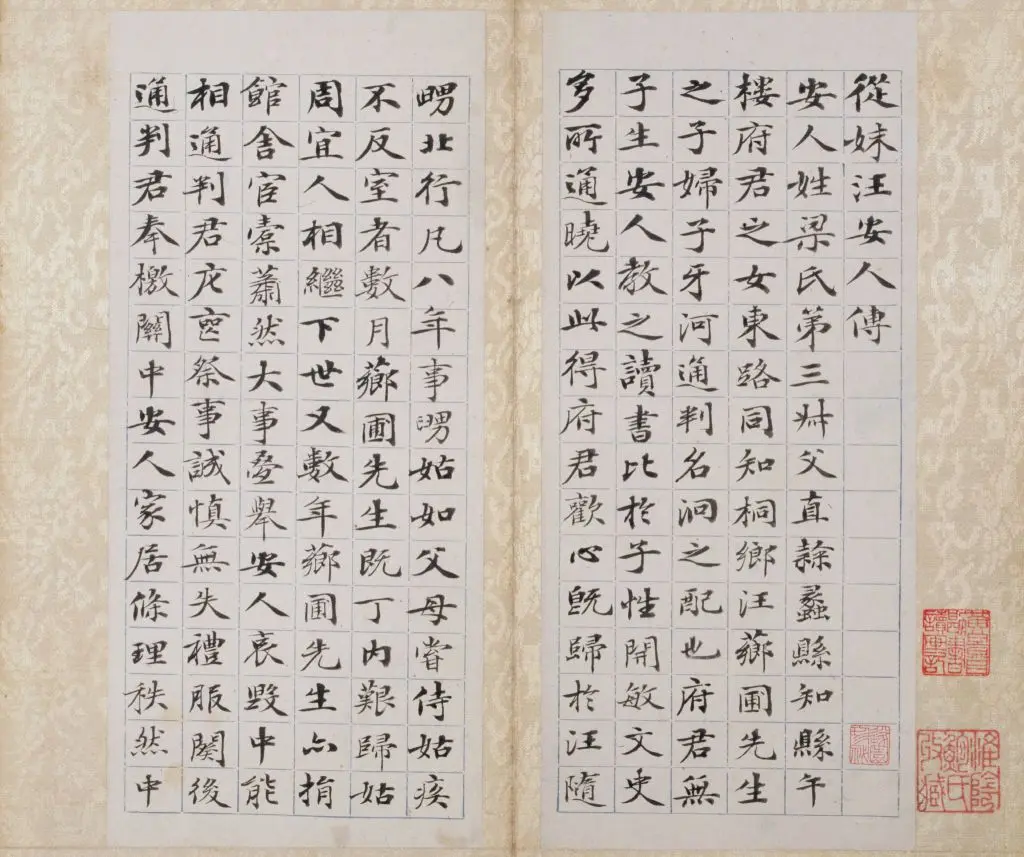 從妹汪安人傳
安人姓梁氏第三叔父直隸蠡縣知縣午
樓府君之女東路同知桐鄉汪薌圃先生
之子婦子牙河通判名泂之配也府君無
子生安人教之讀書比於子性開敏文史
多所通曉以此得府君歡心旣歸於汪隨
舅北行凡八年事舅姑如父母嘗侍姑疾
不反室者數月薌圃先生既丁內艱歸姑
周宜人相繼下世又數年薌圃先生亦捐
館舍宦橐蕭然大事疊舉安人哀毀中能
相通判君庀喪祭事誠慎無失禮服闋後
通判君奉檄關中安人家居條理秩然中